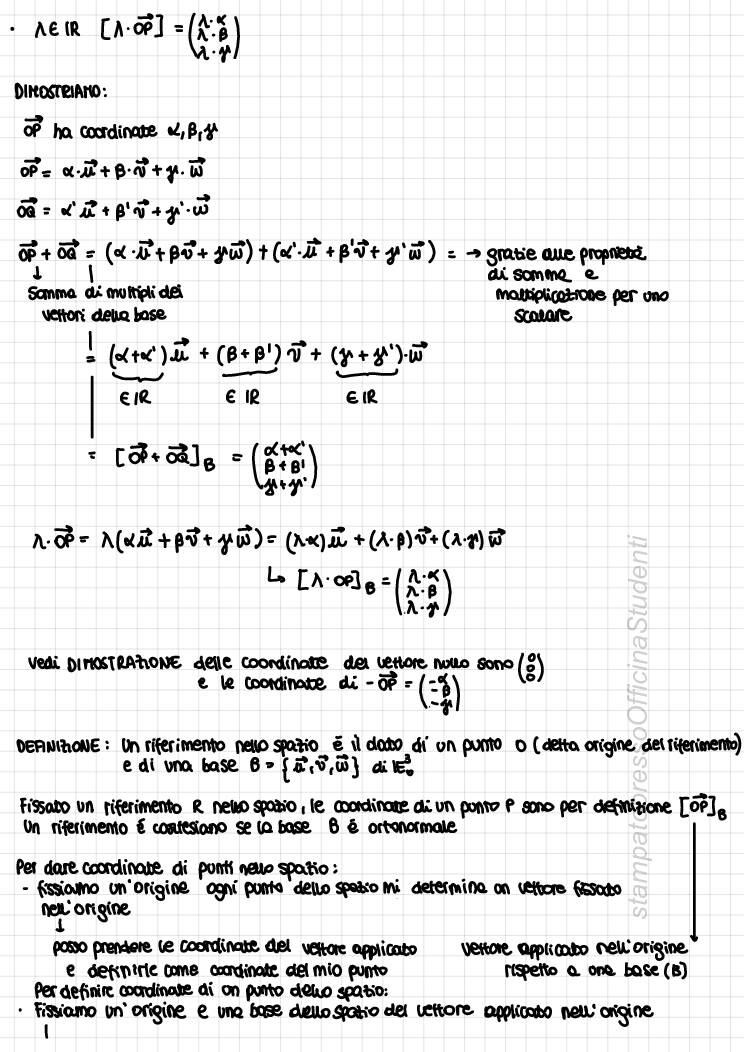 · λ∈ℝ [λ·OP⃗] = (λ·α λ·β λ·γ)
DIMOSTRIAMO:
OP⃗ ha coordinate α,β,γ
OP⃗ = α·u⃗ + β·v⃗ + γ·w⃗
OQ⃗ = α'u⃗ + β'v⃗ + γ'·w⃗
OP⃗ + OQ⃗ = (α·u⃗ + βv⃗ + γw⃗) + (α'·u⃗ + β'v⃗ + γ'w⃗) = → grazie alle proprietà
di somma e
moltiplicazione per uno
scalare
↓
Somma di multipli dei
vettori della base
= (α+α')u⃗ + (β+β')v⃗ + (γ+γ')·w⃗
∈ℝ ∈ℝ ∈ℝ
= [OP⃗ + OQ⃗]B = (α+α' β+β' γ+γ')
λ·OP⃗ = λ(αu⃗ + βv⃗ + γw⃗) = (λ·α)u⃗ + (λ·β)v⃗ + (λ·γ)w⃗
↳ [λ·OP]B = (λ·α λ·β λ·γ)
Vedi DIMOSTRAZIONE delle coordinate del vettore nullo sono (0 0 0)
e le coordinate di -OP⃗ = (-α -β -γ)
DEFINIZIONE: Un riferimento nello spazio è il dato di un punto O (detta origine del riferimento)
e di una base B = {u⃗,v⃗,w⃗} di E³₀
Fissato un riferimento R nello spazio, le coordinate di un punto P sono per definizione [OP⃗]B
Un riferimento è cartesiano se la base B è ortonormale
Per dare coordinate di punti nello spazio:
- fissiamo un'origine ogni punto dello spazio mi determina un vettore fissato
nell'origine
↓
posso prendere le coordinate del vettore applicato
e definirle come coordinate del mio punto
vettore applicato nell'origine
rispetto a una base (B)
Per definire coordinate di un punto dello spazio:
· Fissiamo un'origine e una base dello spazio del vettore applicato nell'origine
stampato presso OfficinaStudenti